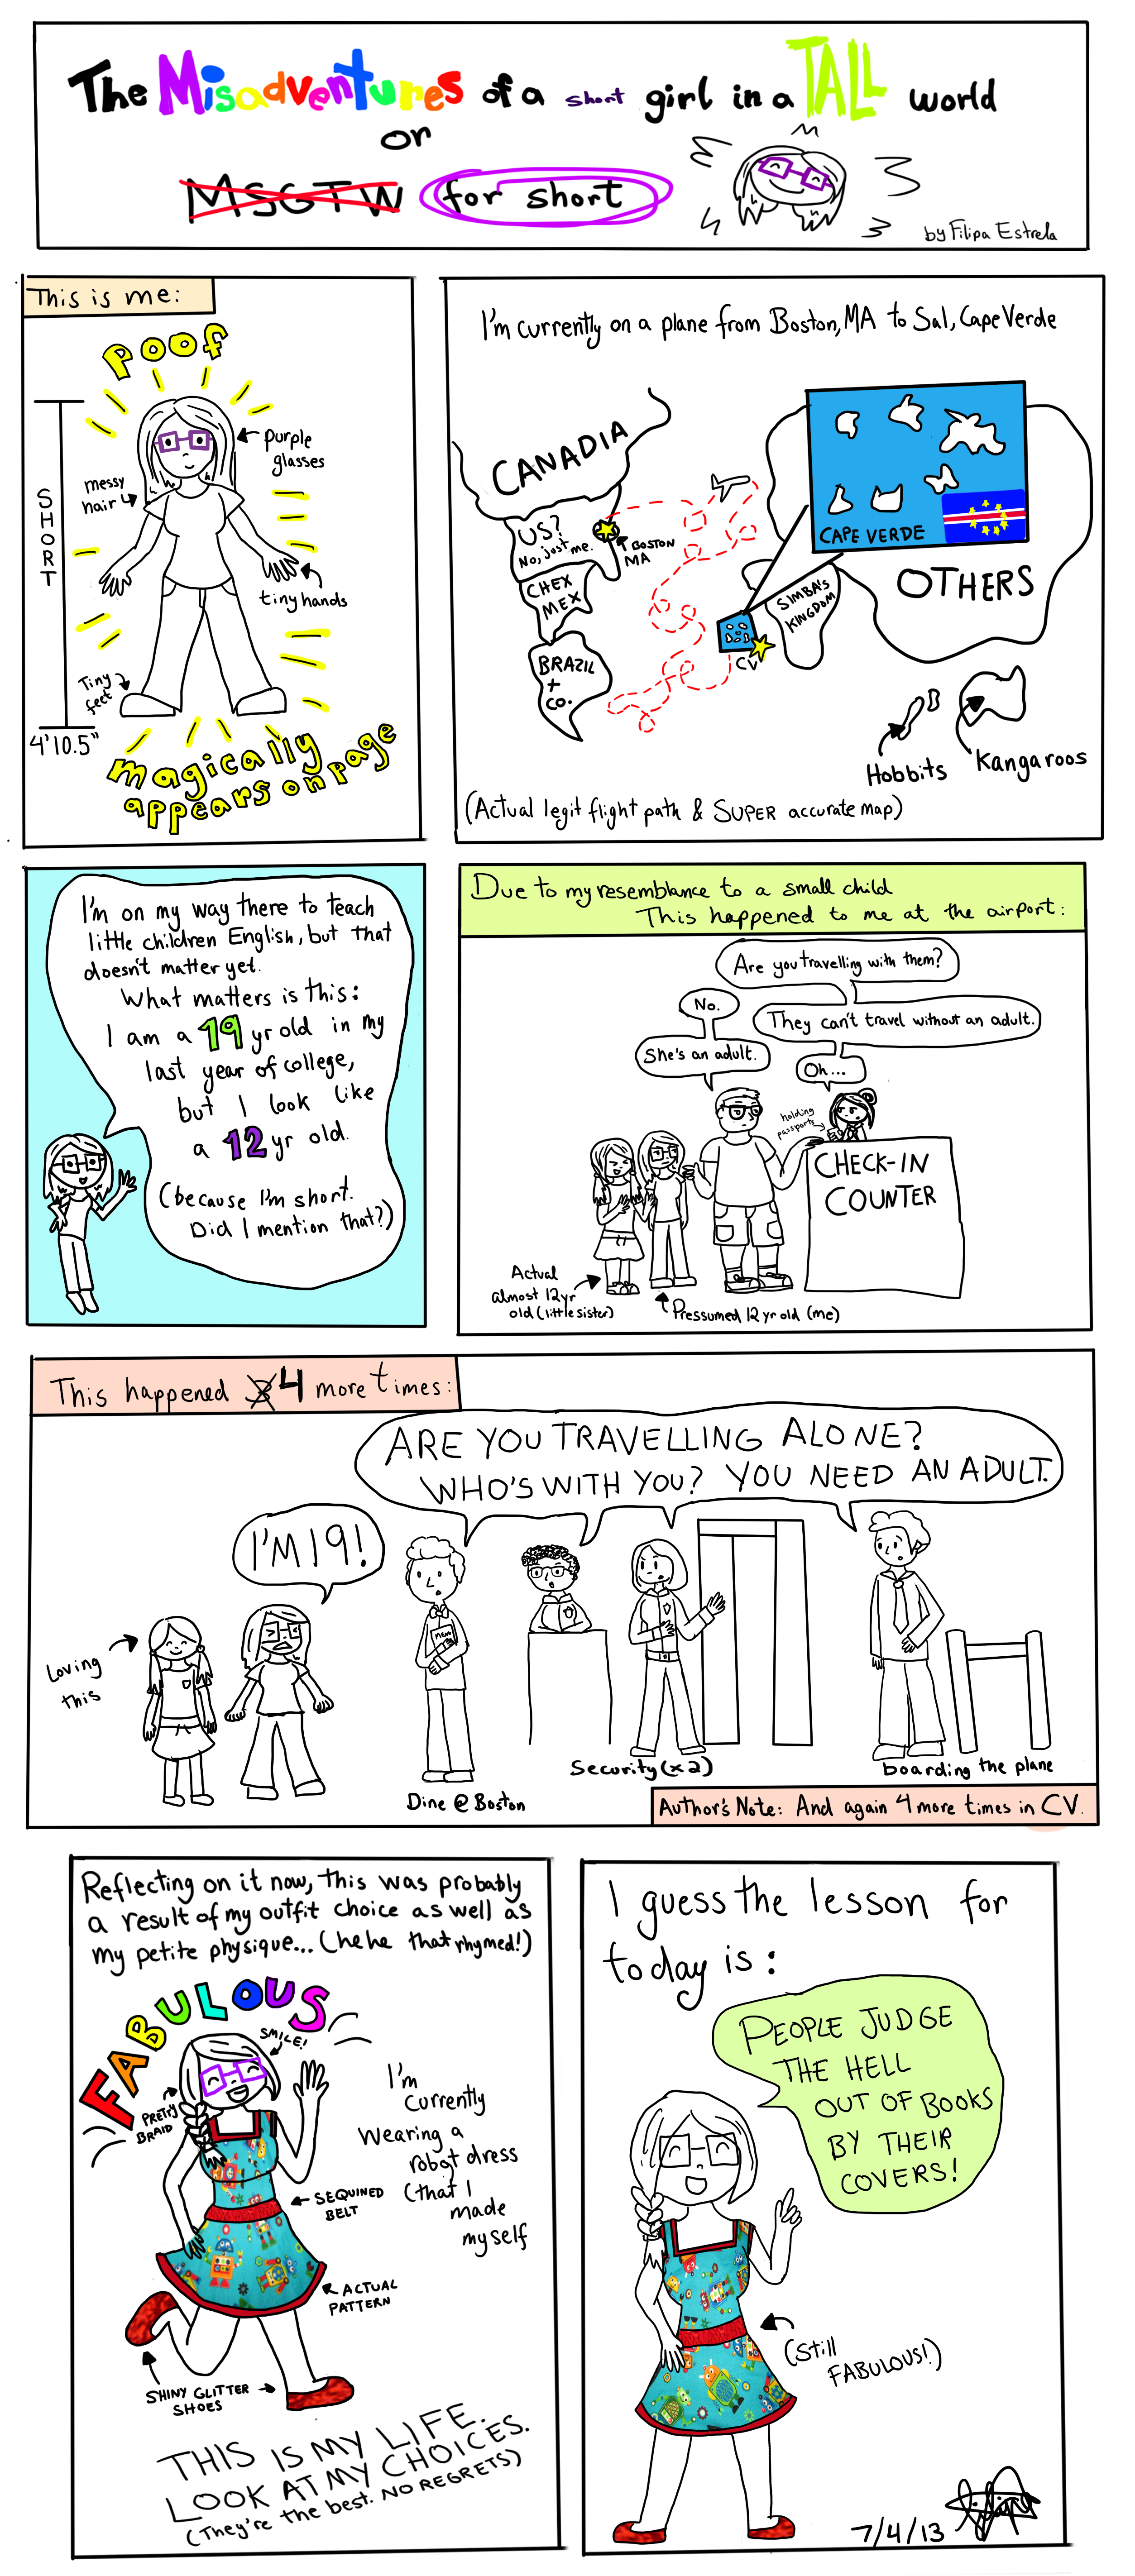 The Misadventures of a short girl in a TALL world
or
MSGTW for short
by Filipa Estrela
This is me:
POOF
SHORT
purple
glasses
messy
hair
tiny hands
Tiny
feet
4'10.5"
magically
appears on page
I'm currently on a plane from Boston, MA to Sal, Cape Verde
CANADIA
US?
No, just me.
BOSTON
MA
CHEX
MEX
BRAZIL
+
CO.
CAPE VERDE
CV
SIMBA'S
KINGDOM
OTHERS
Hobbits
Kangaroos
(Actual legit flight path & SUPER accurate map)
I'm on my way there to teach
little children English, but that
doesn't matter yet.
What matters is this:
I am a 19 yr old in my
last year of college,
but I look like
a 12 yr old.
(because I'm short.
Did I mention that?)
Due to my resemblance to a small child
This happened to me at the airport:
Are you travelling with them?
No.
They can't travel without an adult.
She's an adult.
Oh...
holding
passports
CHECK-IN
COUNTER
Actual
almost 12yr
old (little sister)
Pressumed 12 yr old (me)
This happened 3 4 more times:
ARE YOU TRAVELLING ALONE?
WHO'S WITH YOU? YOU NEED AN ADULT.
I'M 19!
Loving
this
MENU
Dine @ Boston
Security (x2)
boarding the plane
Author's Note: And again 4 more times in CV.
Reflecting on it now, this was probably
a result of my outfit choice as well as
my petite physique... (hehe that rhymed!)
FABULOUS
SMILE!
PRETTY
BRAID
I'm
currently
wearing a
robot dress
(that I
made
myself
SEQUINED
BELT
ACTUAL
PATTERN
SHINY GLITTER
SHOES
THIS IS MY LIFE.
LOOK AT MY CHOICES.
(They're the best. NO REGRETS)
I guess the lesson for
today is:
PEOPLE JUDGE
THE HELL
OUT OF BOOKS
BY THEIR
COVERS!
(Still
FABULOUS!)
7/4/13